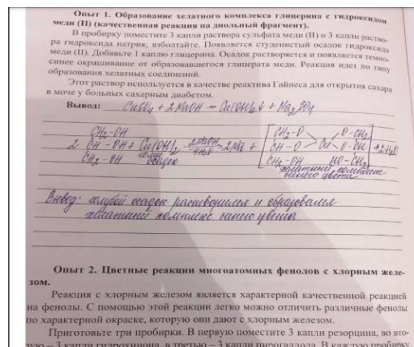 Опыт 1. Образование хелатного комплекса глицерина с гидроксидом
меди (II) (качественная реакция на диольный фрагмент).
В пробирку поместите 3 капли раствора сульфата меди (II) и 3 капли раство-
ра гидроксида натрия, взболтайте. Появляется студенистый осадок гидроксида
меди (II). Добавьте 1 каплю глицерина. Осадок растворяется и появляется темно-
синее окрашивание от образовавшегося глицерата меди. Реакция идет по типу
образования хелатных соединений.
Этот раствор используется в качестве реактива Гайнеса для открытия сахара
в моче у больных сахарным диабетом.
Вывод: CuSO₄ + 2NaOH → Cu(OH)₂↓ + Na₂SO₄
CH₂-OH
2 CH-OH + Cu(OH)₂
CH₂-OH осадок
CH₂-O O-CH₂
CH-O Cu O-CH + 2H₂O
CH₂-OH HO-CH₂
хелатный комплекс
синего цвета
Вывод: голубой осадок растворился и образовался
хелатный комплекс синего цвета
Опыт 2. Цветные реакции многоатомных фенолов с хлорным желе-
зом.
Реакция с хлорным железом является характерной качественной реакцией
на фенолы. С помощью этой реакции легко можно отличить различные фенолы
по характерной окраске, которую они дают с хлорным железом.
Приготовьте три пробирки. В первую поместите 3 капли резорцина, во вто-
рую – 3 капли гидрохинона, в третью – 3 капли пирогаллола. В каждую пробирку